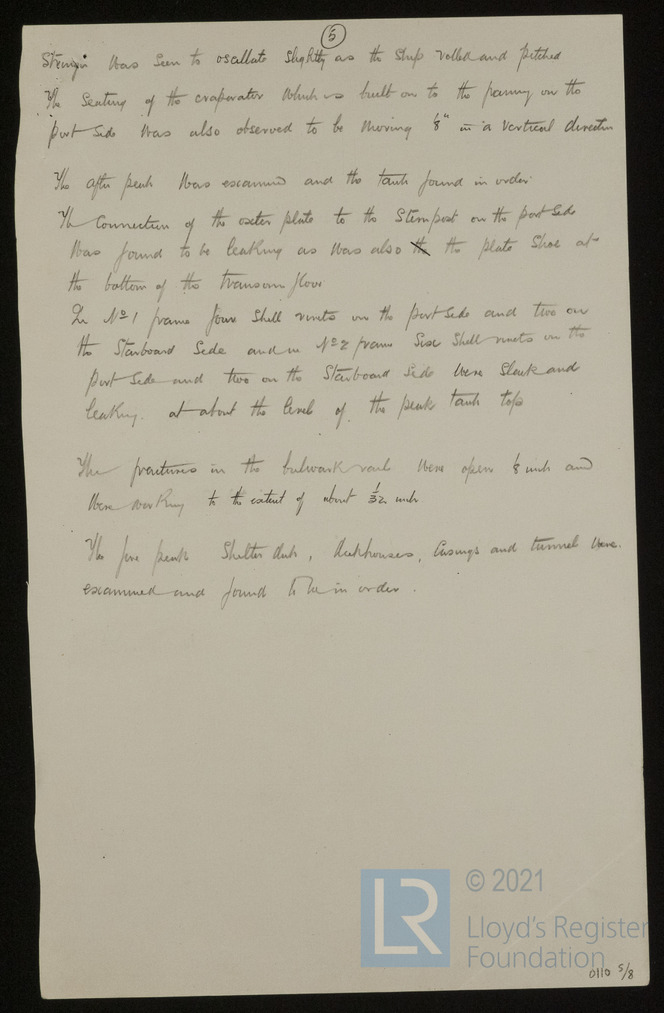 5
Stringer was seen to oscillate slightly as the ship rolled and pitched
The Seating of the evaporator which is built on to the panting on the
port side was also observed to be moving 1/8" in a vertical direction
The after peak was examined and the tank found in order
The Connection of the oxter plate to the Sternpost on the port side
was found to be leaking as was also the plate Shoe at
the bottom of the transom floor
In No 1 frame four Shell rivets on the port side and two on
the Starboard Side and in No 2 frame Six Shell rivets on the
port side and two on the Starboard Side were Slack and
leaking. at about the level of the peak tank top
The fractures in the bulwark rail were open 1/8 inch and
were working to the extent of about 1/32 inch
The fore peak Shelter deck, deckhouses, Casings and tunnel were.
examined and found to be in order.
LR
© 2021
Lloyd's Register
Foundation
0110 5/8